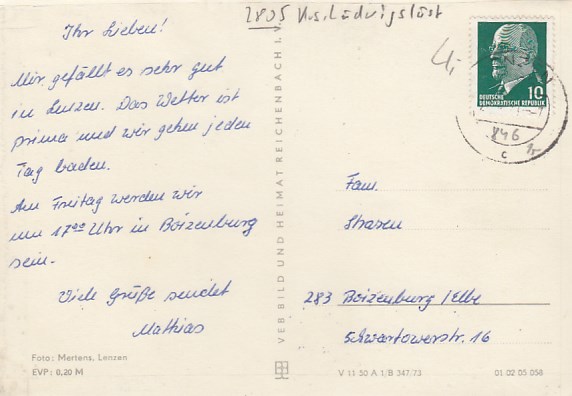 2805 Krs. Ludwigslust
Ihr Lieben!
Mir gefällt es sehr gut
in Lenzen. Das Wetter ist
prima und wir gehen jeden
Tag baden.
Am Freitag werden wir
um 17⁰⁰ Uhr in Boizenburg
sein.
Viele Grüße sendet
Mathias
Foto: Mertens, Lenzen
EVP: 0,20 M
VEB BILD UND HEIMAT REICHENBACH I. V.
10
DEUTSCHE
DEMOKRATISCHE REPUBLIK
846
c
Fam.
283 Boizenburg/Elbe
Schwartowerstr. 16
V 11 50 A 1/B 347/73
01 02 05 058